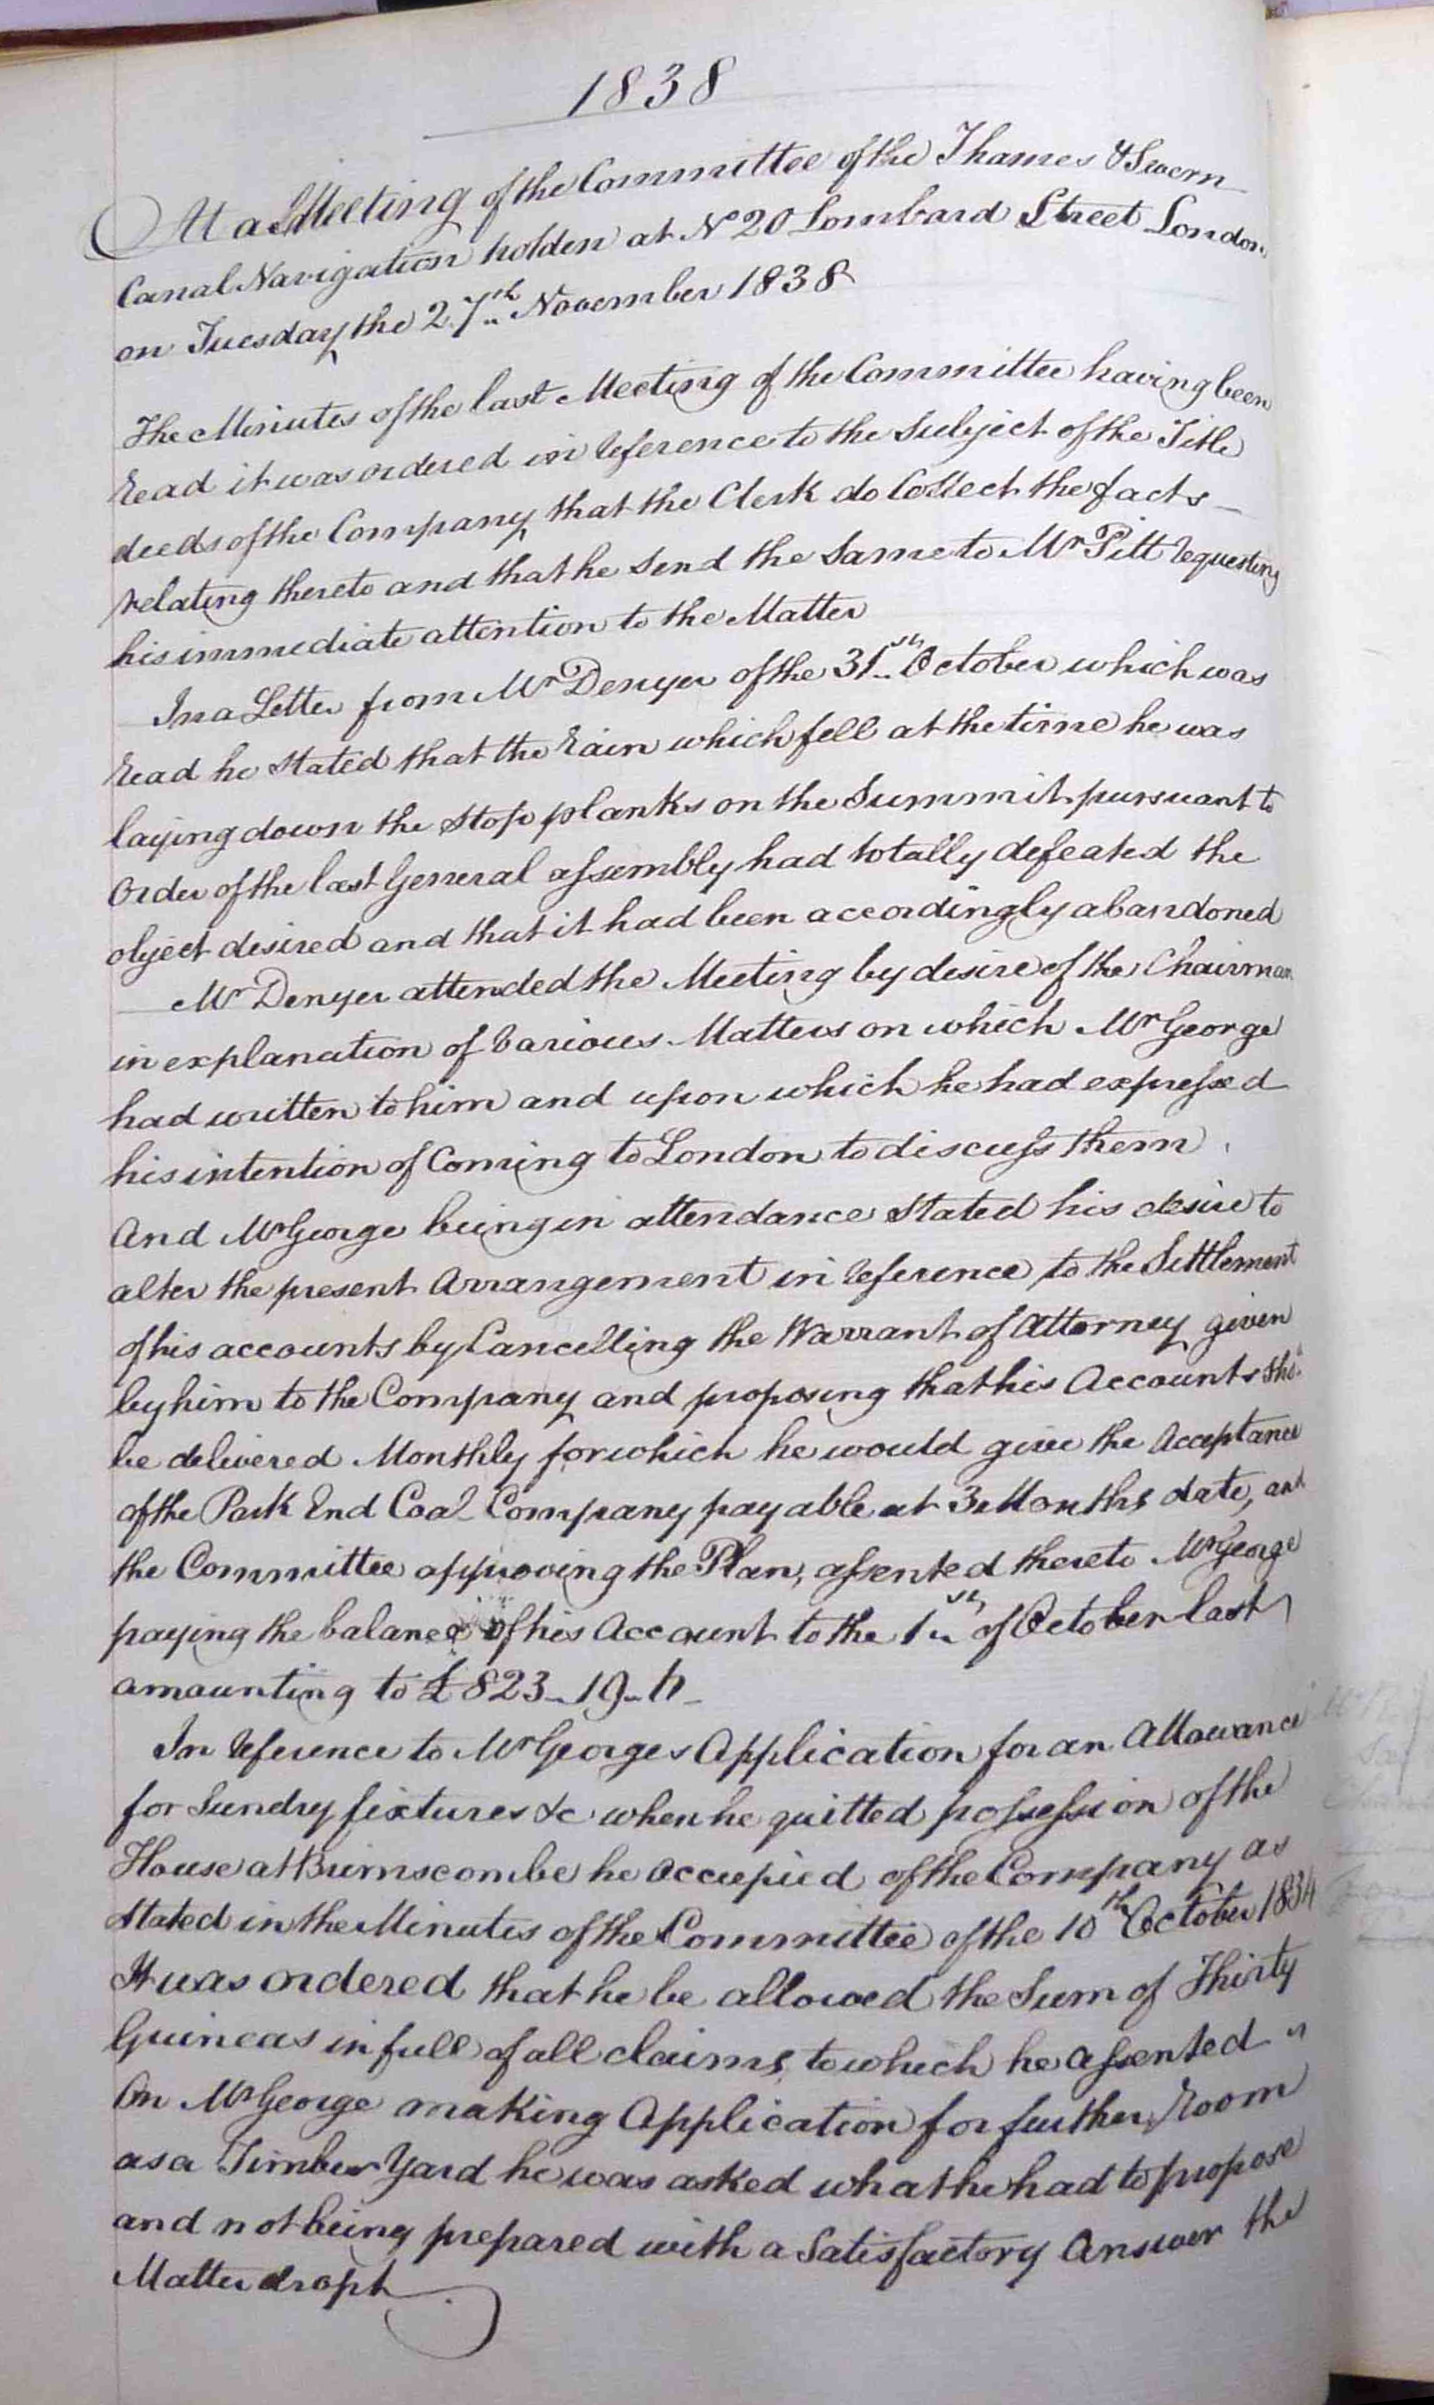 1838
At a Meeting of the Committee of the Thames & Severn
Canal Navigation holden at No 20 Lombard Street London
on Tuesday the 27th November 1838
The Minutes of the last Meeting of the Committee having been
read it was ordered in reference to the Subject of the Title
deeds of the Company that the Clerk do Collect the facts
relating thereto and that he send the Same to Mr Pitt requesting
his immediate attention to the Matter
In a Letter from Mr Denyer of the 31st October which was
read he stated that the rain which fell at the time he was
laying down the stop planks on the Summit pursuant to
Order of the last General assembly had totally defeated the
object desired and that it had been accordingly abandoned
Mr Denyer attended the Meeting by desire of the Chairman
in explanation of Various Matters on which Mr George
had written to him and upon which he had expressed
his intention of Coming to London to discuss them
And Mr George being in attendance stated his desire to
alter the present Arrangement in reference to the Settlement
of his accounts by Cancelling the Warrant of Attorney given
by him to the Company and proposing that his Accounts shod
be delivered Monthly for which he would give the Acceptance
of the Park End Coal Company payable at 3 Months date, and
the Committee approving the Plan, assented thereto Mr George
paying the balance of his Account to the 1st of October last
amounting to £823-19-
In reference to Mr Georges Application for an Allowance
for Sundry fixtures &c when he quitted possession of the
House at Brimscombe he occupied of the Company as
stated in the Minutes of the Committee of the 10th October 1834
It was ordered that he be allowed the Sum of Thirty
Guineas in full of all claims, to which he assented "
On Mr George making Application for further room
as a Timber Yard he was asked what he had to propose
and not being prepared with a Satisfactory Answer the
Matter dropt